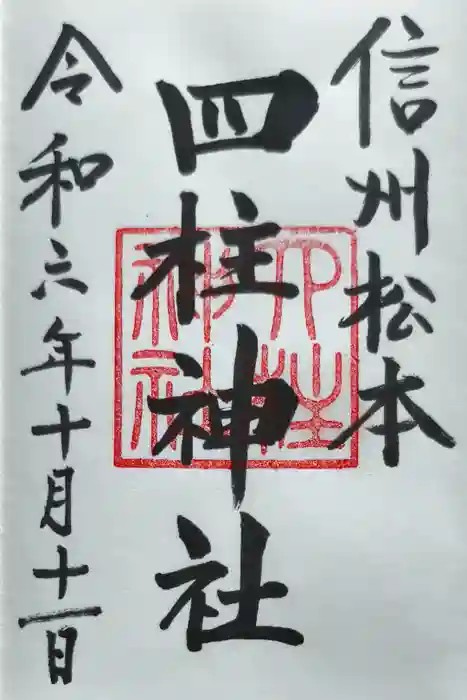 信州松本
四柱神社
令和六年十月十一日
四柱
神社